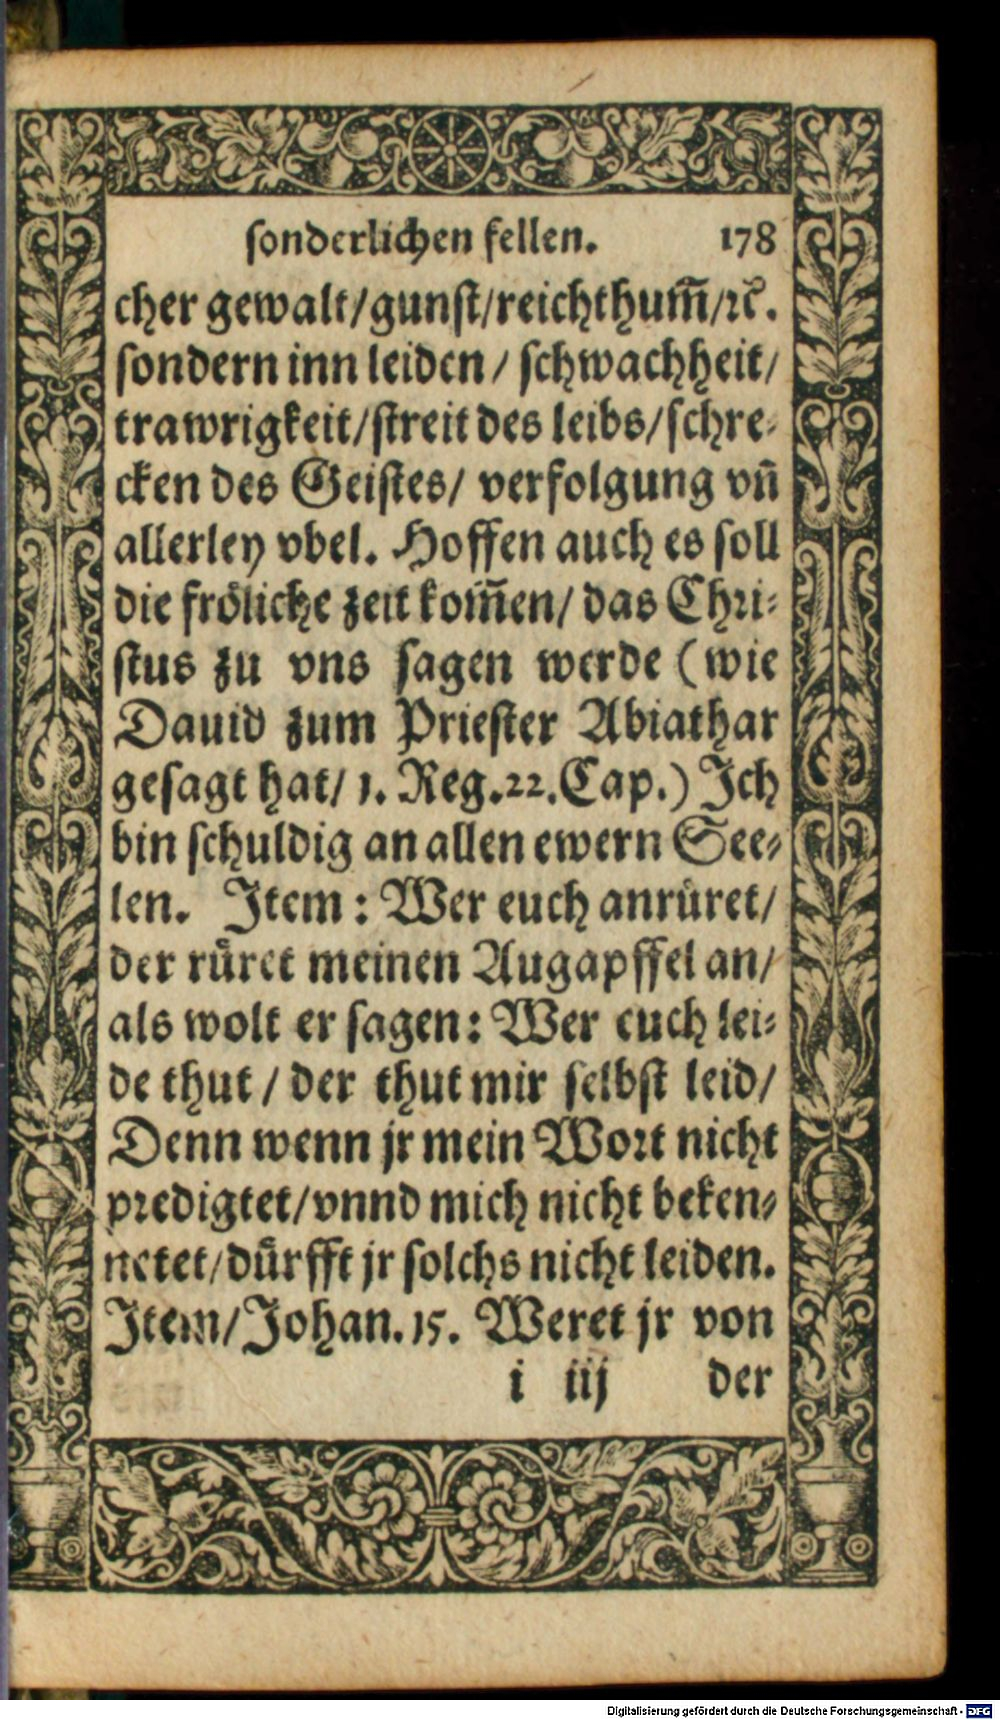 sonderlichen fellen. 178
cher gewalt/gunst/reichthum̃/ꝛc̃.
sondern inn leiden / schwachheit/
trawrigkeit/streit des leibs/schre-
cken des Geistes/ verfolgung vñ
allerley vbel. Hoffen auch es soll
die fröliche zeit kom̃en/ das Chri-
stus zu vns sagen werde (wie
Dauid zum Priester Abiathar
gesagt hat/ 1. Reg.22.Cap.) Ich
bin schuldig an allen ewern See-
len. Item : Wer euch anrüret/
der rüret meinen Augapffel an/
als wolt er sagen: Wer euch lei-
de thut / der thut mir selbst leid/
Denn wenn jr mein Wort nicht
predigtet/vnnd mich nicht beken-
netet/dürfft jr solchs nicht leiden.
Item/Johan.15. Weret jr von
i iij der
Digitalisierung gefördert durch die Deutsche Forschungsgemeinschaft - DFG